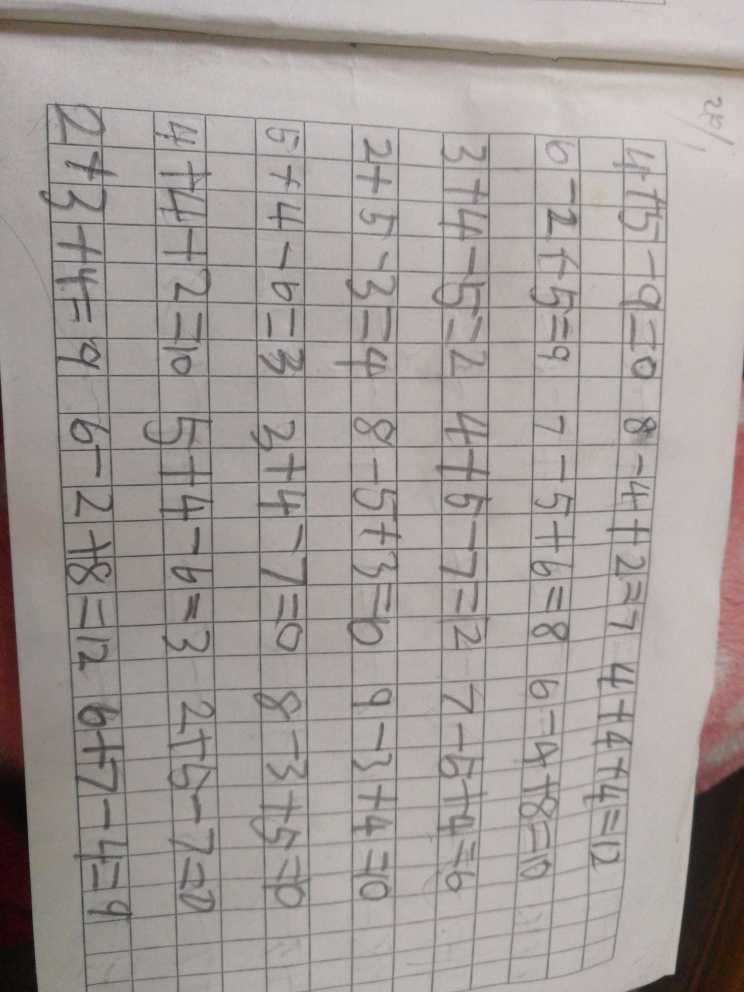 4+5-9=0 8-4+2=7 4+4+4=12
6-2+5=9 7-5+6=8 6-4+8=10
3+4-5=2 4+5-7=2 7-5+4=6
2+5-3=4 8-5+3=6 9-3+4=10
5+4-6=3 3+4-7=0 8-3+5=10
4+4+2=10 5+4-6=3 2+5-7=0
2+3+4=9 6-2+8=12 6+7-4=9